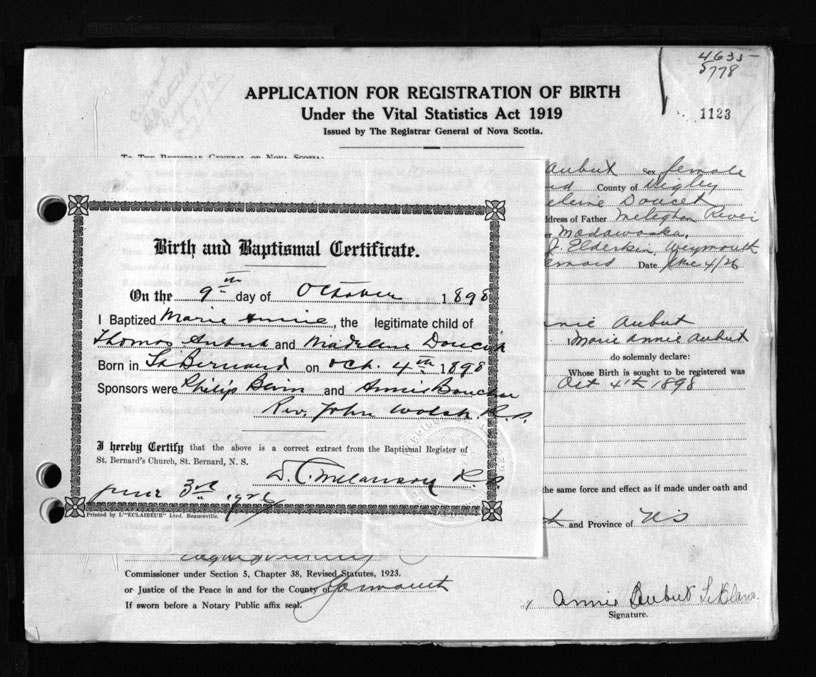 4635
5778
1123
APPLICATION FOR REGISTRATION OF BIRTH
Under the Vital Statistics Act 1919
Issued by The Registrar General of Nova Scotia.
To The Registrar General of Nova Scotia
Aubut Sex female
County of Digby
Doucet
Address of Father Meteghan River
Madawaska,
J. Elderkin, Weymouth
Date June 4/26
Annie Aubut
Marie Annie Aubut
do solemnly declare:
Whose Birth is sought to be registered was
Oct 4th 1898
Birth and Baptismal Certificate.
On the 9th day of October 1898
I Baptized Marie Annie, the legitimate child of
Thomas Aubut and Madeline Doucet
Born in St Bernard on Oct. 4th 1898
Sponsors were Philip and Annie
Rev. John Walsh
I hereby Certify that the above is a correct extract from the Baptismal Register of
St. Bernard's Church, St. Bernard, N. S.
Melanson
June 3rd 1926
Printed by L'"ECLAIREUR" Lted. Beauceville.
the same force and effect as if made under oath and
and Province of NS
Commissioner under Section 5, Chapter 38, Revised Statutes, 1923.
or Justice of the Peace in and for the County of Yarmouth
If sworn before a Notary Public affix seal.
Annie Aubut LeBlanc
Signature.